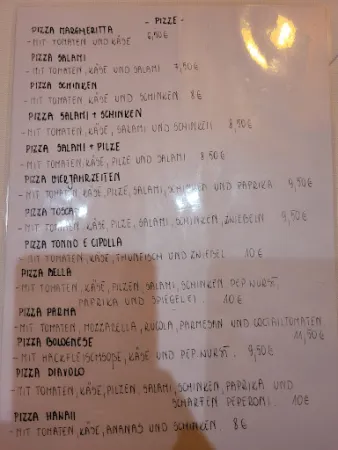 - PIZZE -
PIZZA MARGHERITTA
- MIT TOMATEN UND KÄSE 6,50€
PIZZA SALAMI
- MIT TOMATEN, KÄSE UND SALAMI 7,50€
PIZZA SCHINKEN
- MIT TOMATEN, KÄSE UND SCHINKEN. 8€
PIZZA SALAMI + SCHINKEN
- MIT TOMATEN, KÄSE, SALAMI UND SCHINKEN 8,50€
PIZZA SALAMI + PILZE
- MIT TOMATEN, KÄSE, PILZE UND SALAMI 8.50€
PIZZA VIERJAHRZEITEN
- MIT TOMATEN, KÄSE, PILZE, SALAMI, SCHINKEN UND PAPRIKA 9,50€
PIZZA TOSCA
- MIT TOMATEN, KÄSE, PILZE, SALAMI, SCHINKEN, ZWIEBELN 9,50€
PIZZA TONNO E CIPOLLA
- MIT TOMATEN, KÄSE, THUNFISCH UND ZWIEBEL 10€
PIZZA BELLA
- MIT TOMATEN, KÄSE, PILZEN, SALAMI, SCHINKEN PEP.WURST,
PAPRIKA UND SPIEGELEI. 10€
PIZZA PARMA
- MIT TOMATEN, MOZZARELLA, RUCOLA, PARMESAN UND COCTAILTOMATEN
11,50€
PIZZA BOLOGNESE
- MIT HACKFLEISCHSOßE, KÄSE UND PEP.WURST. 9,50€
PIZZA DIAVOLO
- MIT TOMATEN, KÄSE, PILZEN, SALAMI, SCHINKEN, PAPRIKA UND
SCHARFEN PEPERONI. 10€
PIZZA HAWAII
- MIT TOMATEN, KÄSE, ANANAS UND SCHINKEN 8€